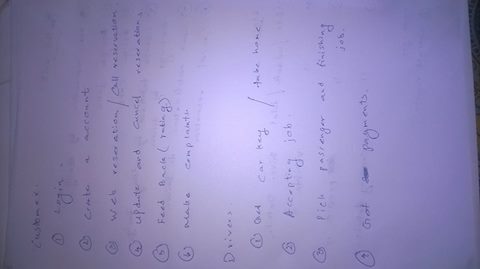 Customer.
① Login.
② Create a account
③ Web reservation / Call reservation.
④ Update and Cancel reservations.
⑤ Feed Back (rating)
⑥ Make complaints
Drivers.
① Get car key / take home
② Accepting job.
③ Pick passenger and finishing
job.
④ Get payments.